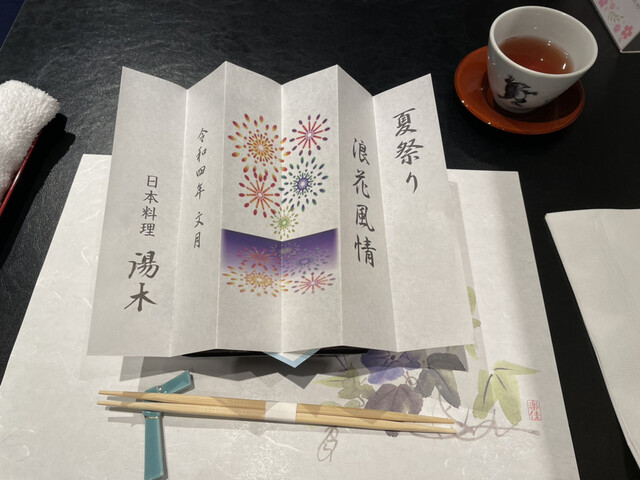 夏祭り
浪花風情
令和四年 文月
日本料理 陽木